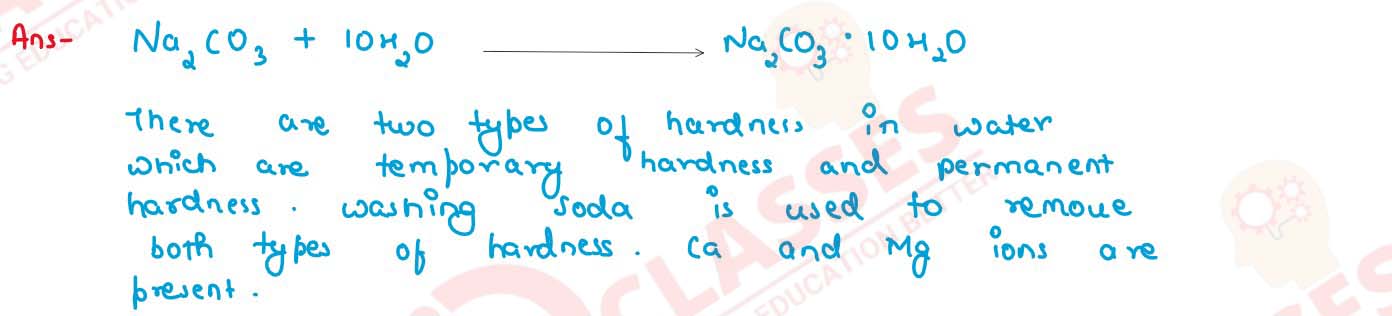 Ans- Na₂CO₃ + 10H₂O ⟶ Na₂CO₃·10H₂O
There are two types of hardness in water
which are temporary hardness and permanent
hardness. washing soda is used to remove
both types of hardness. Ca and Mg ions are
present.
CLASSES
EDUCATION BETTER